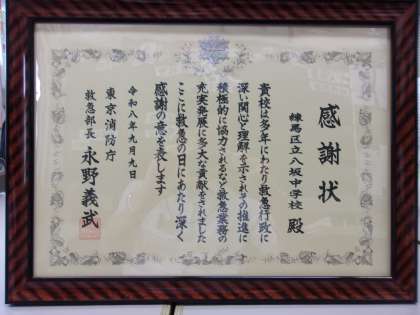 感謝状
練馬区立八坂中学校 殿
貴校は多年にわたり救急行政に
深い関心と理解を示されその推進に
積極的に協力されるなど救急業務の
充実発展に多大な貢献をされました
ここに救急の日にあたり深く
感謝の意を表します
令和八年九月九日
東京消防庁
救急部長 永野義武